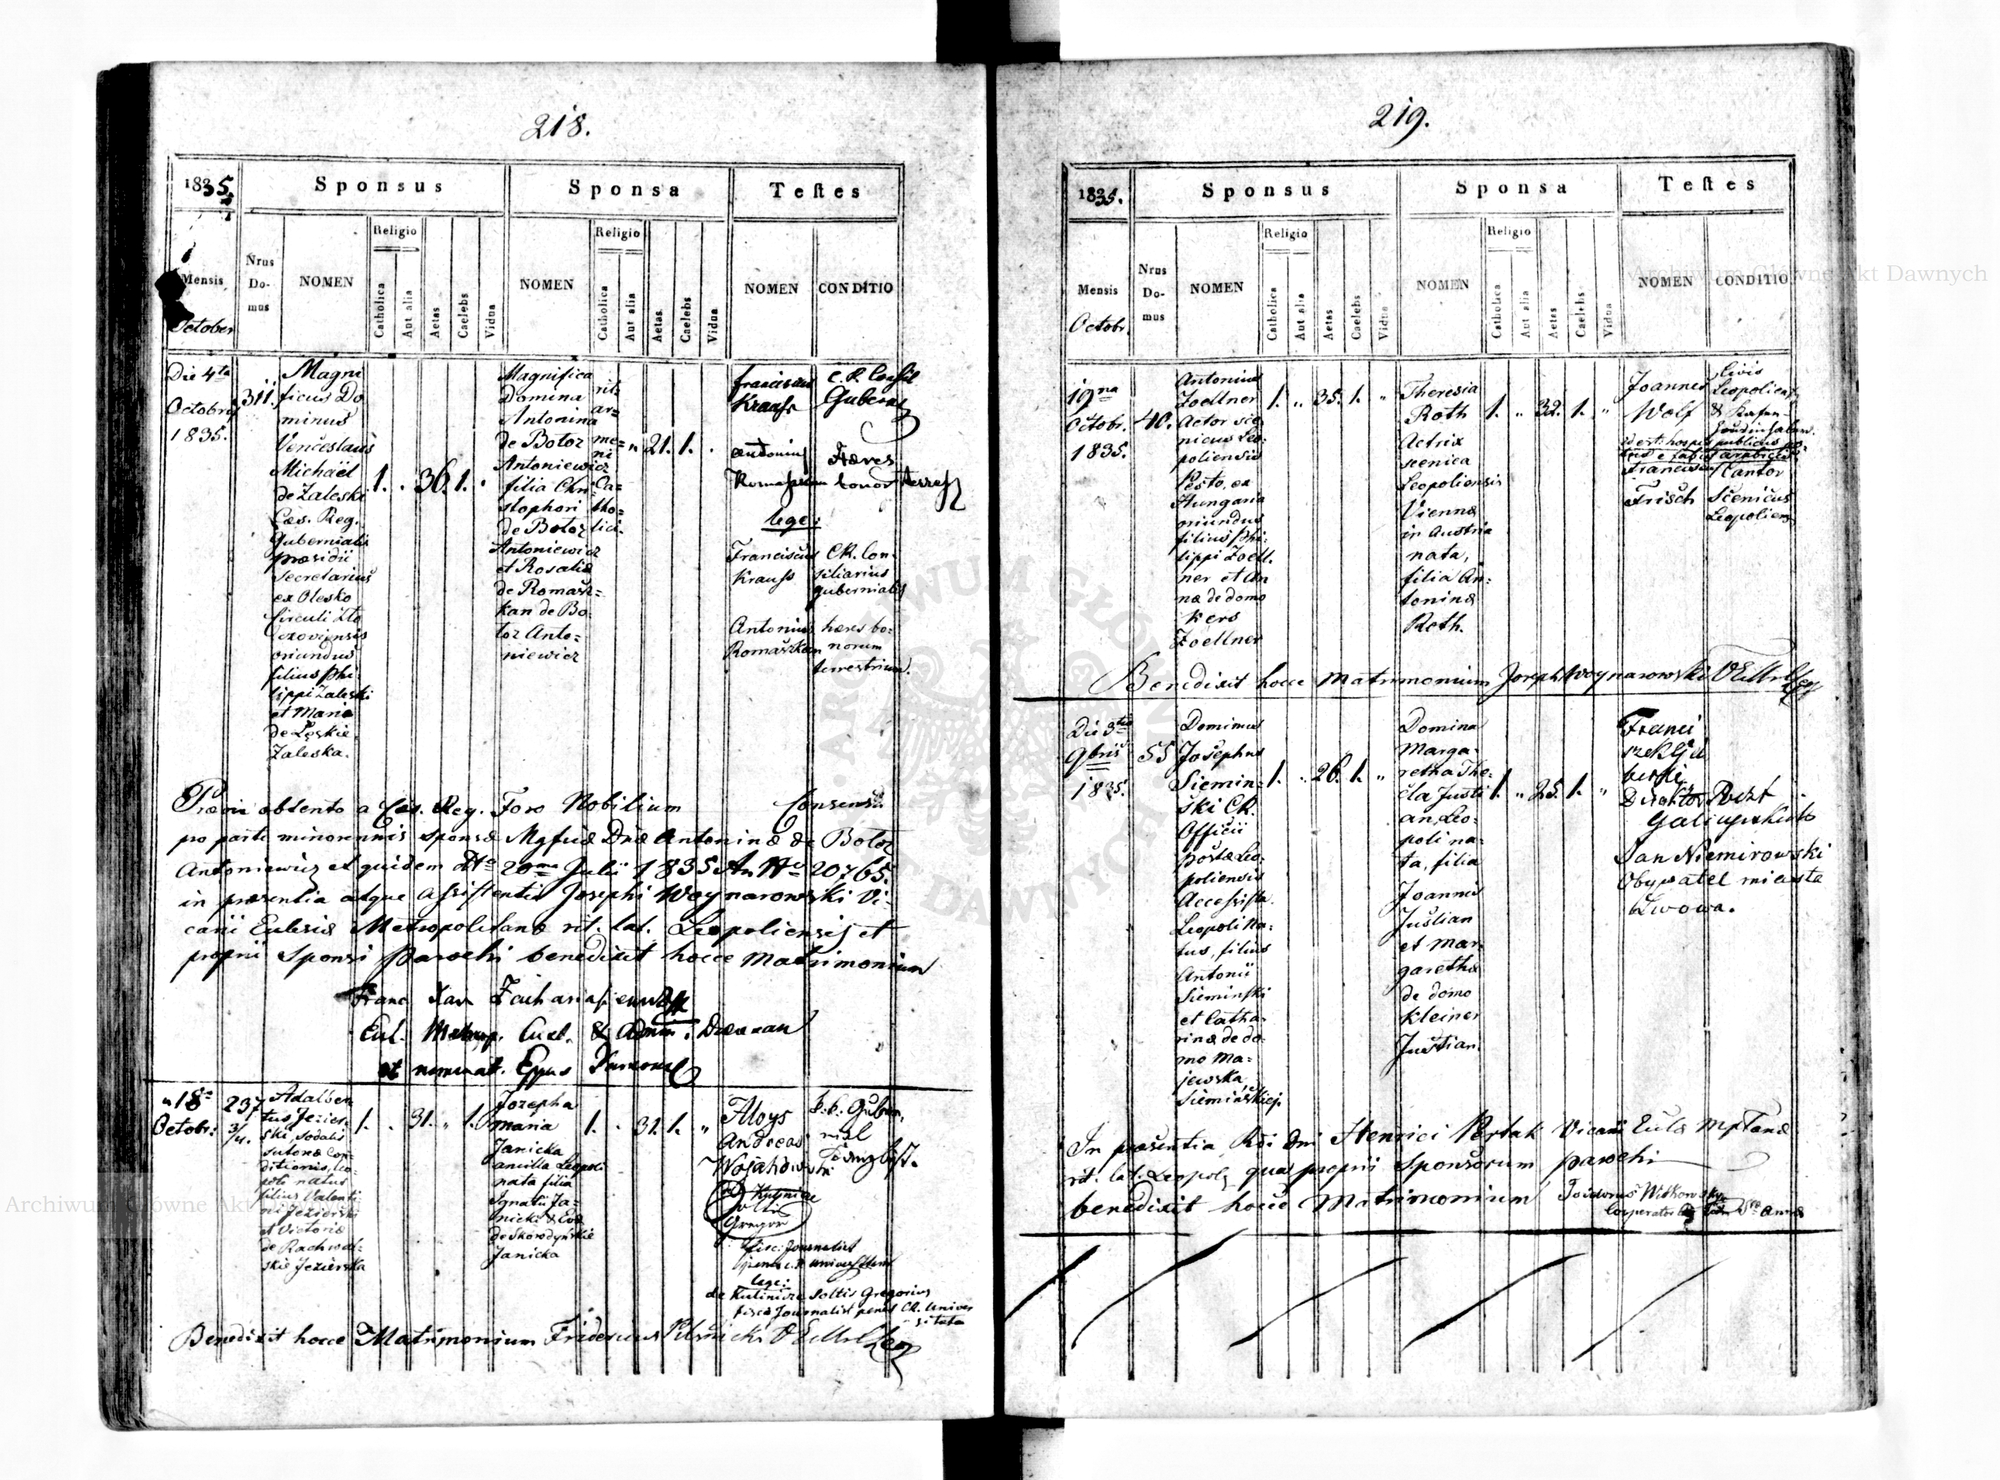 218.
1835.
Sponsus
Sponsa
Testes
Mensis
October
Nrus Do- mus
NOMEN
Religio
Catholica
Aut alia
Aetas
Caelebs
Vidua
NOMEN
Religio
Catholica
Aut alia
Aetas
Caelebs
Vidua
NOMEN
CONDITIO
Die 4ta
Octobris
1835.
311.
Magni
ficus Do
minus
Venceslaus
Michaël
de Zaleski
Cæs. Reg.
Gubernialis
præsidii
Secretarius
ex Olesko
Circuli Zlo
czoviensis
oriundus
filius Phi
lippi Zaleski
et Maria
de Leskie
Zaleska.
1. 36. 1.
Magnifica
Domina
Antonina
de Botoz
Antoniewicz
filia Chri
stophori
de Botoz
Antoniewicz
et Rosaliæ
de Romasz=
kan de Bo
toz Anto=
niewicz
rit.
ar=
me=
ni
Ca=
tho=
lici.
21. 1.
Franciscus
Krauss
C. R. Consil
Gubern
Antonius
Romaszkan
Hæres
bonor terres
lege:
Franciscus
Krauss
CR. Con=
siliarius
gubernialis
Antonius
Romaszkan
hæres bo=
norum
terrestrium.
Prævie obtento a Cæs. Reg. Foro Nobilium Consensu
pro parte minorennis sponsæ Mgfcæ Dnæ Antoninæ de Botoz
Antoniewicz et quidem 20ma Julii 1835 20765.
in præsentia atque assistentia Josephi Woynarowski Vi=
carii Eclesiæ Metropolitanæ rit. lat. Leopoliensis et
proprii Sponsi parochi benedixit hocce Matrimonium
Franc Xav Zachariasiewicz
Ecl. Metrop. Cust. & Admin. Decan
et nominat. Eppus Tarnov
18a
Octobr.
237
3/4.
Adalber
tus Jezier
ski, sodalis
Sutoriæ Con
ditionis, Leo
poli natus
filius Valenti
ni Jezierski
et Victoriæ
de Rachwal=
skie Jezierska
1. 31. 1.
Josepha
Maria
Janicka
ancilla Leopoli
nata filia
Ignatii Ja=
nicki & Evæ
de Skorodyńskie
Janicka
1. 31. 1.
Aloys
Andreas
Wojakowski
k. k. Guber.
nial
de Kulinicze
Soltis
Gregor
fisc: Journalist
penes
lege:
de Kulinicze Soltis Gregorius
fiscæ Journalist penes CR. Univer
sitate
Benedixit hocce Matrimonium Fridericus Pilsnicki
219.
1835.
Sponsus
Sponsa
Testes
Mensis
Octobr.
Nrus Do- mus
NOMEN
Religio
Catholica
Aut alia
Aetas
Caelebs
Vidua
NOMEN
Religio
Catholica
Aut alia
Aetas
Caelebs
Vidua
NOMEN
CONDITIO
19na
Octobr.
1835.
40.
Antonius
Zoellner
Actor sce
nicus Leo=
poliensis
Pesto, ex
Hungaria
oriundus
filius Phi=
lippi Zoell.
ner et An
næ de domo
Kers
Zoellner
1. 35. 1.
Theresia
Roth
Actrix
scenica
Leopoliensis
Vienna
in Austria
nata,
filia An=
toninæ
Roth.
1. 32. 1.
Joannes
Wolf
Civis
Leopoliens
&
id est: hospes publicus
Franciscus
Frisch
Cantor
Scenicus
Leopoliens
Benedixit hocce Matrimonium Joseph Woynarowski
Die 3tia
9bris
1835.
55
Dominus
Josephus
Siemin=
ski CR.
Officii
postæ Leo=
poliensis
Accessista
Leopoli Na=
tus, filius
Antonii
Sieminski
et Catha=
rinæ de do=
mo Ma=
jewska
Siemińskiej.
1. 26. 1.
Domina
Marga=
retha The=
cla Justi
an, Leo=
poli na=
ta, filia
Joannis
Justian
et Mar=
garetha
de domo
Kleiner
Justian.
1. 25. 1.
Franci
szek
Direktor Poczt
Galicyjskich
Jan Niemirowski
Obywatel miasta
Lwowa.
In præsentia Rdi Dni Henrici Vicarii Ecclæ Mptanæ
rit. lat. Leopol, qua proprii Sponsorum parochi
benedixit hocce Matrimonium Isidorus Witkowski
Cooperator Stæ Annæ
Archiwum Główne Akt Dawnych
Archiwum Główne Akt Dawnych
ARCHIWUM GŁÓWNE AKT DAWNYCH